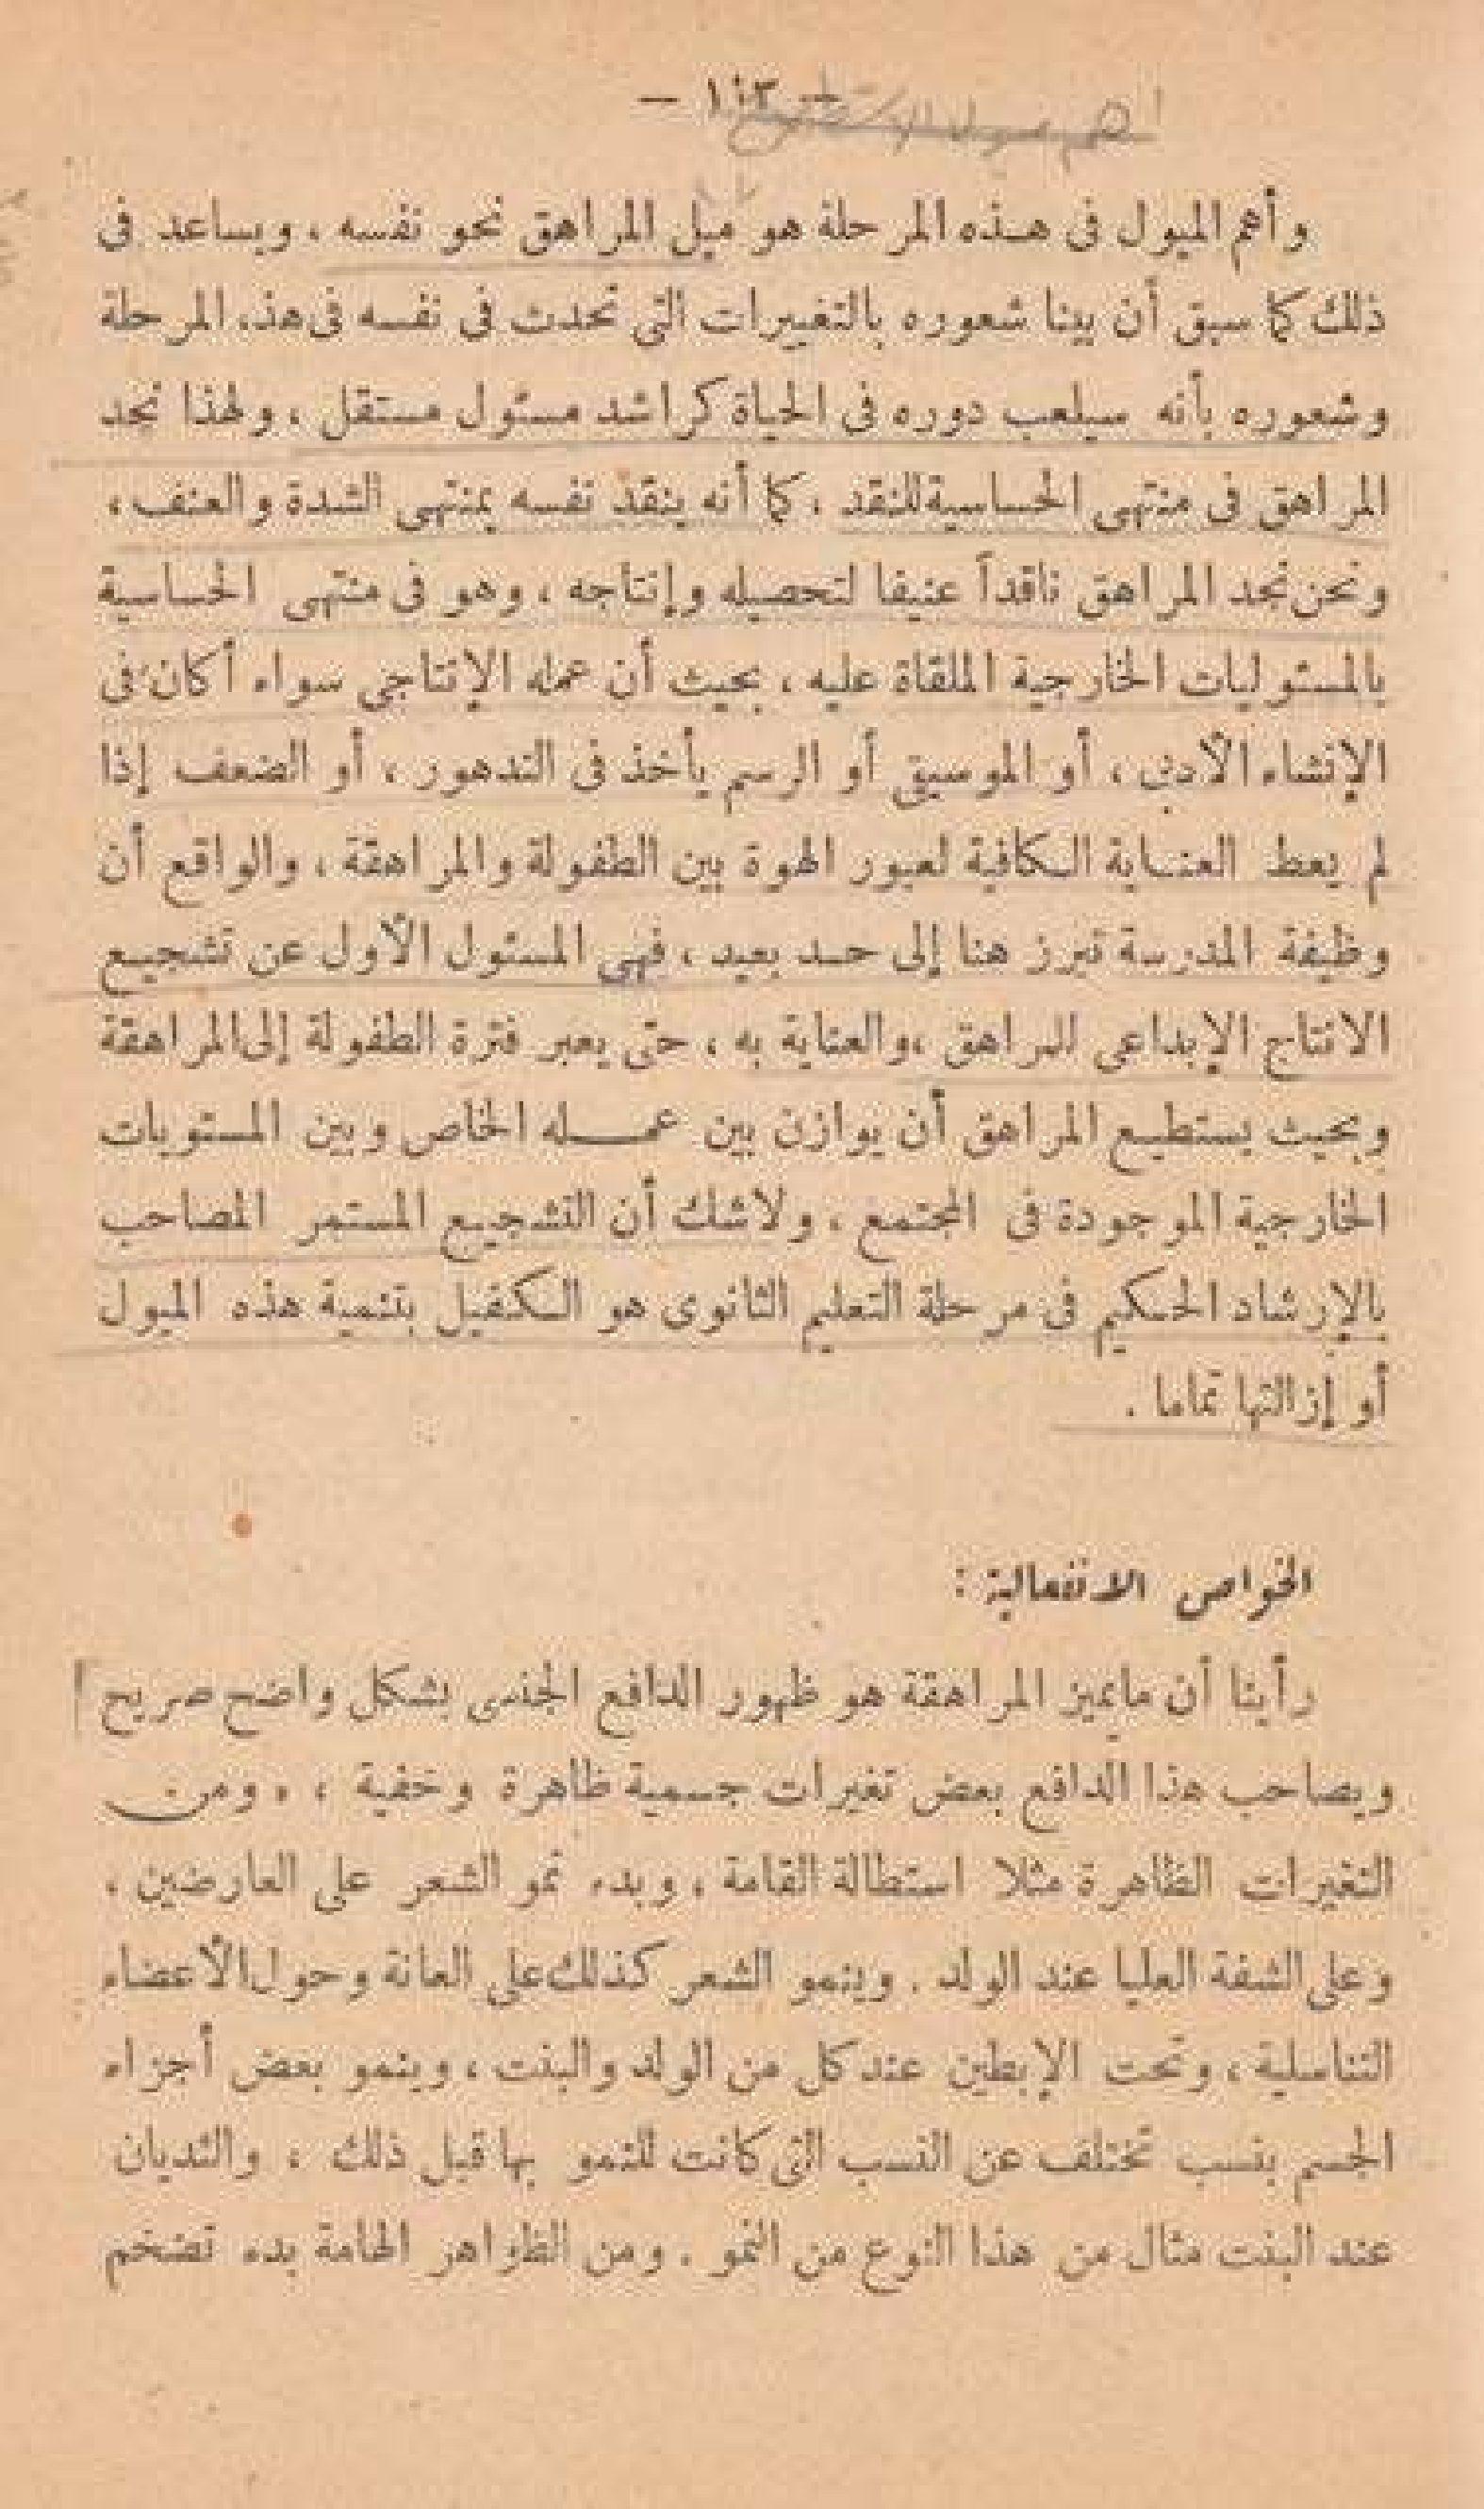 — ١٠٣ —
وأهم الميول فى هـذه المرحلة هو ميل المراهق نحو نفسه ، ويساعد فى
ذلك كما سبق أن بينا شعوره بالتغييرات التى تحدث فى نفسه فى هذه المرحلة
وشعوره بأنه سيلعب دوره فى الحياة كراشد مسئول مستقل ، ولهذا نجد
المراهق فى منتهى الحساسية للنقد ، كما أنه ينقد نفسه بمنتهى الشدة والعنف ،
ونحن نجد المراهق ناقداً عنيفا لتحصيله وإنتاجه ، وهو فى منتهى الحساسية
بالمسئوليات الخارجية الملقاة عليه ، بحيث أن عمله الإنتاجى سواء أكان فى
الإنشاء الأدبى ، أو الموسيقى أو الرسم يأخذ فى التدهور ، أو الضعف إذا
لم يعط العنـاية الـكافية لعبور الهوة بين الطفولة والمراهقة ، والواقع أن
وظيفة المدرسة تبرز هنا إلى حـد بعيد ، فهى المسئول الأول عن تشجيـع
الانتاج الإبداعى للمراهق ، والعناية به ، حتى يعبر فترة الطفولة إلى المراهقة
وبحيث يستطيـع المراهق أن يوازن بين عمـــله الخاص وبين المستويات
الخارجية الموجودة فى المجتمع . ولاشك أن التشجيـع المستمر المصاحب
بالإرشاد الحـكيم فى مرحلة التعليم الثانوى هو الـكفيل بتنمية هذه الميول
أو إزالتها تماما .
الخواص الانفعالية :
رأينا أن مايميز المراهقة هو ظهور الدافع الجنسى بشكل واضح صريح
ويصاحب هذا الدافع بعض تغيرات جسمية ظاهرة وخفية ، ، ومن
التغيرات الظاهرة مثلا استطالة القامة ، وبدء نمو الشعر على العارضين ،
وعلى الشفة العليا عند الولد . وينمو الشعر كذلك على العانة وحول الأعضاء
التناسلية ، وتحت الإبطين عند كل من الولد والبنت ، وينمو بعض أجزاء
الجسم بنسب تختلف عن النسب التى كانت للنمو بها قبل ذلك ، والثديان
عند البنت مثال من هذا النوع من النمو . ومن الظواهر الهامة بدء تضخم